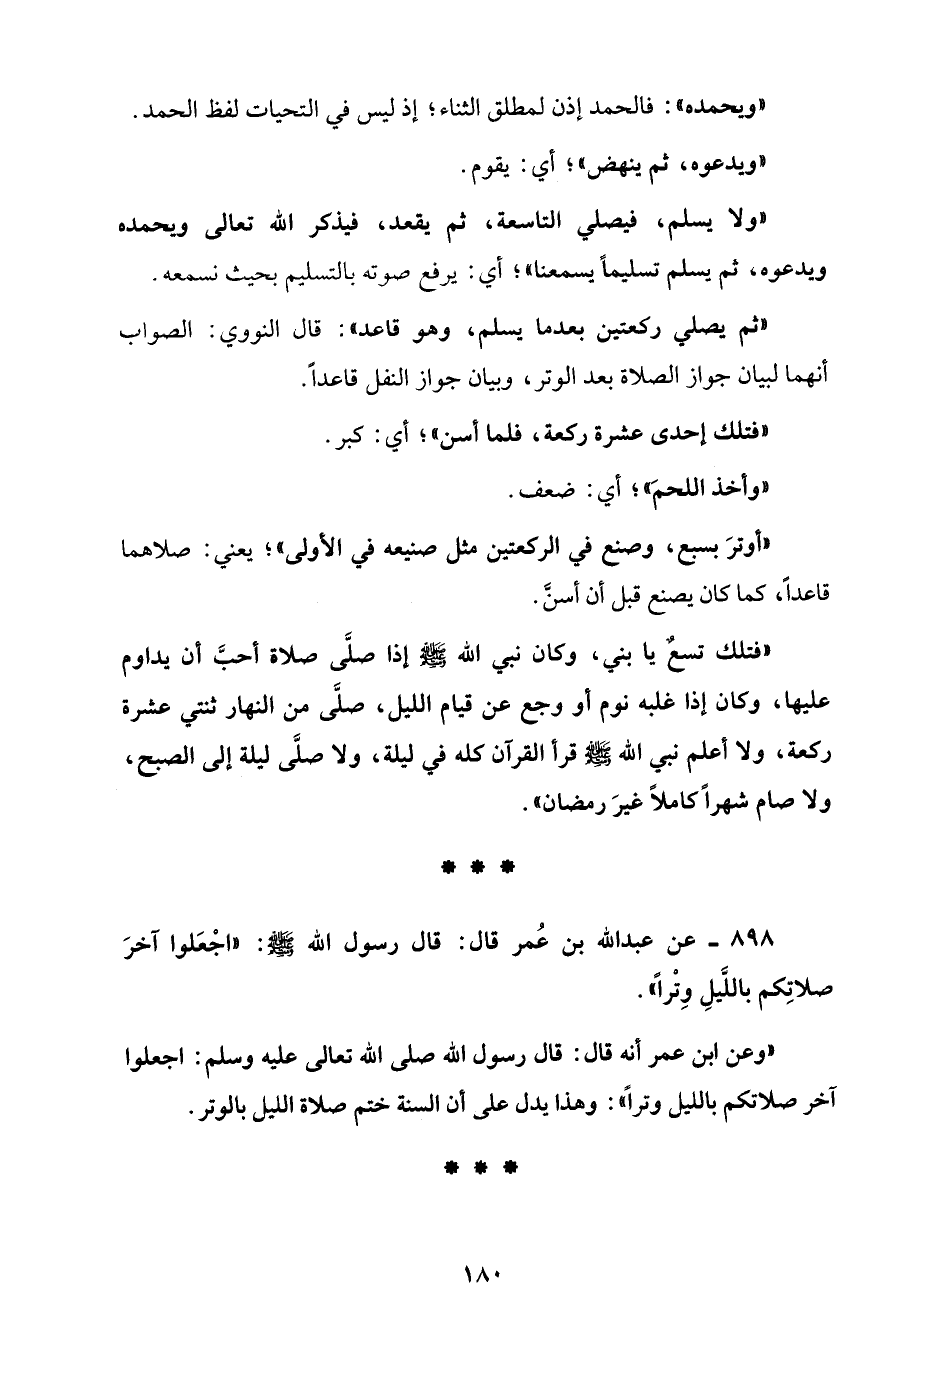 «ويحمده»: فالحمد إذن لمطلق الثناء؛ إذ ليس في التحيات لفظ الحمد.
«ويدعوه، ثم ينهض»؛ أي: يقوم.
«ولا يسلم، فيصلي التاسعة، ثم يقعد، فيذكر الله تعالى ويحمده
ويدعوه، ثم يسلم تسليماً يسمعنا»؛ أي: يرفع صوته بالتسليم بحيث نسمعه.
«ثم يصلي ركعتين بعدما يسلم، وهو قاعد»: قال النووي: الصواب
أنهما لبيان جواز الصلاة بعد الوتر، وبيان جواز النفل قاعداً.
«فتلك إحدى عشرة ركعة، فلما أسن»؛ أي: كبر.
«وأخذ اللحمَ»؛ أي: ضعف.
«أوترَ بسبع، وصنع في الركعتين مثل صنيعه في الأولى»؛ يعني: صلاهما
قاعداً، كما كان يصنع قبل أن أسنَّ.
«فتلك تسعٌ يا بني، وكان نبي الله ﷺ إذا صلَّى صلاة أحبَّ أن يداوم
عليها، وكان إذا غلبه نوم أو وجع عن قيام الليل، صلَّى من النهار ثنتي عشرة
ركعة، ولا أعلم نبي الله ﷺ قرأ القرآن كله في ليلة، ولا صلَّى ليلة إلى الصبح،
ولا صام شهراً كاملاً غيرَ رمضان».
* * *
٨٩٨ ـ عن عبدالله بن عُمر قال: قال رسول الله ﷺ: «اجْعَلوا آخرَ
صلاتِكم باللَّيلِ وِتْراً».
«وعن ابن عمر أنه قال: قال رسول الله صلى الله تعالى عليه وسلم: اجعلوا
آخر صلاتكم بالليل وتراً»: وهذا يدل على أن السنة ختم صلاة الليل بالوتر.
* * *
١٨٠